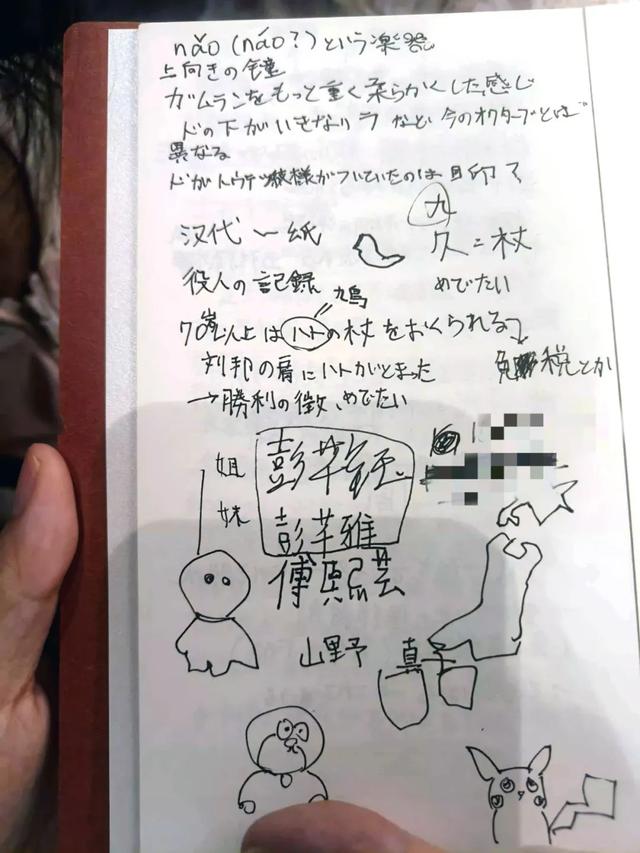 nǎo (náo?) という楽器
上向きの鐘
ガムランをもっと重く柔らかくした感じ
ドの下がいきなりラ など 今のオクターブとは
異なる
ドがトウテツ紋様がついていたのは目印?
九
汉代〜紙
久=杖
役人の記録
めでたい
鳩
70歳以上はハトの杖をおくられる
免税とか
刘邦の肩にハトがとまった
→勝利の徴、めでたい
姐
彭芊
妹
彭芊雅
傅熙芸
山野 真